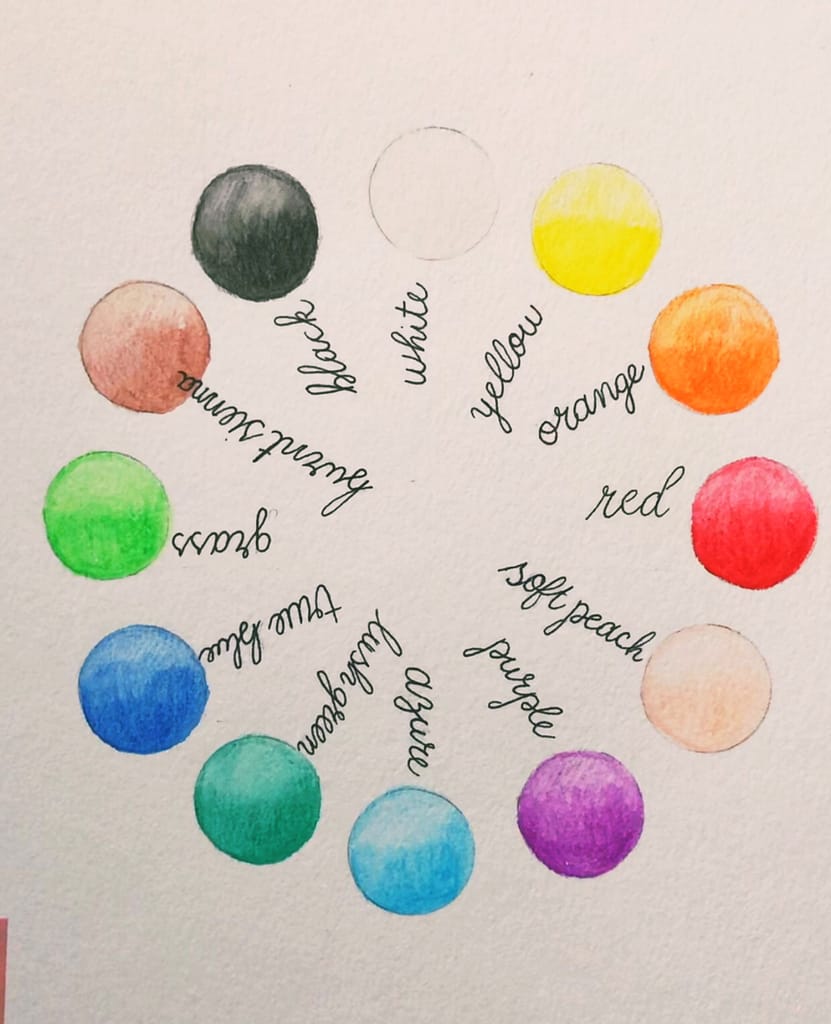 white
yellow
orange
red
soft peach
purple
azure
lush green
true blue
grass
burnt sienna
black